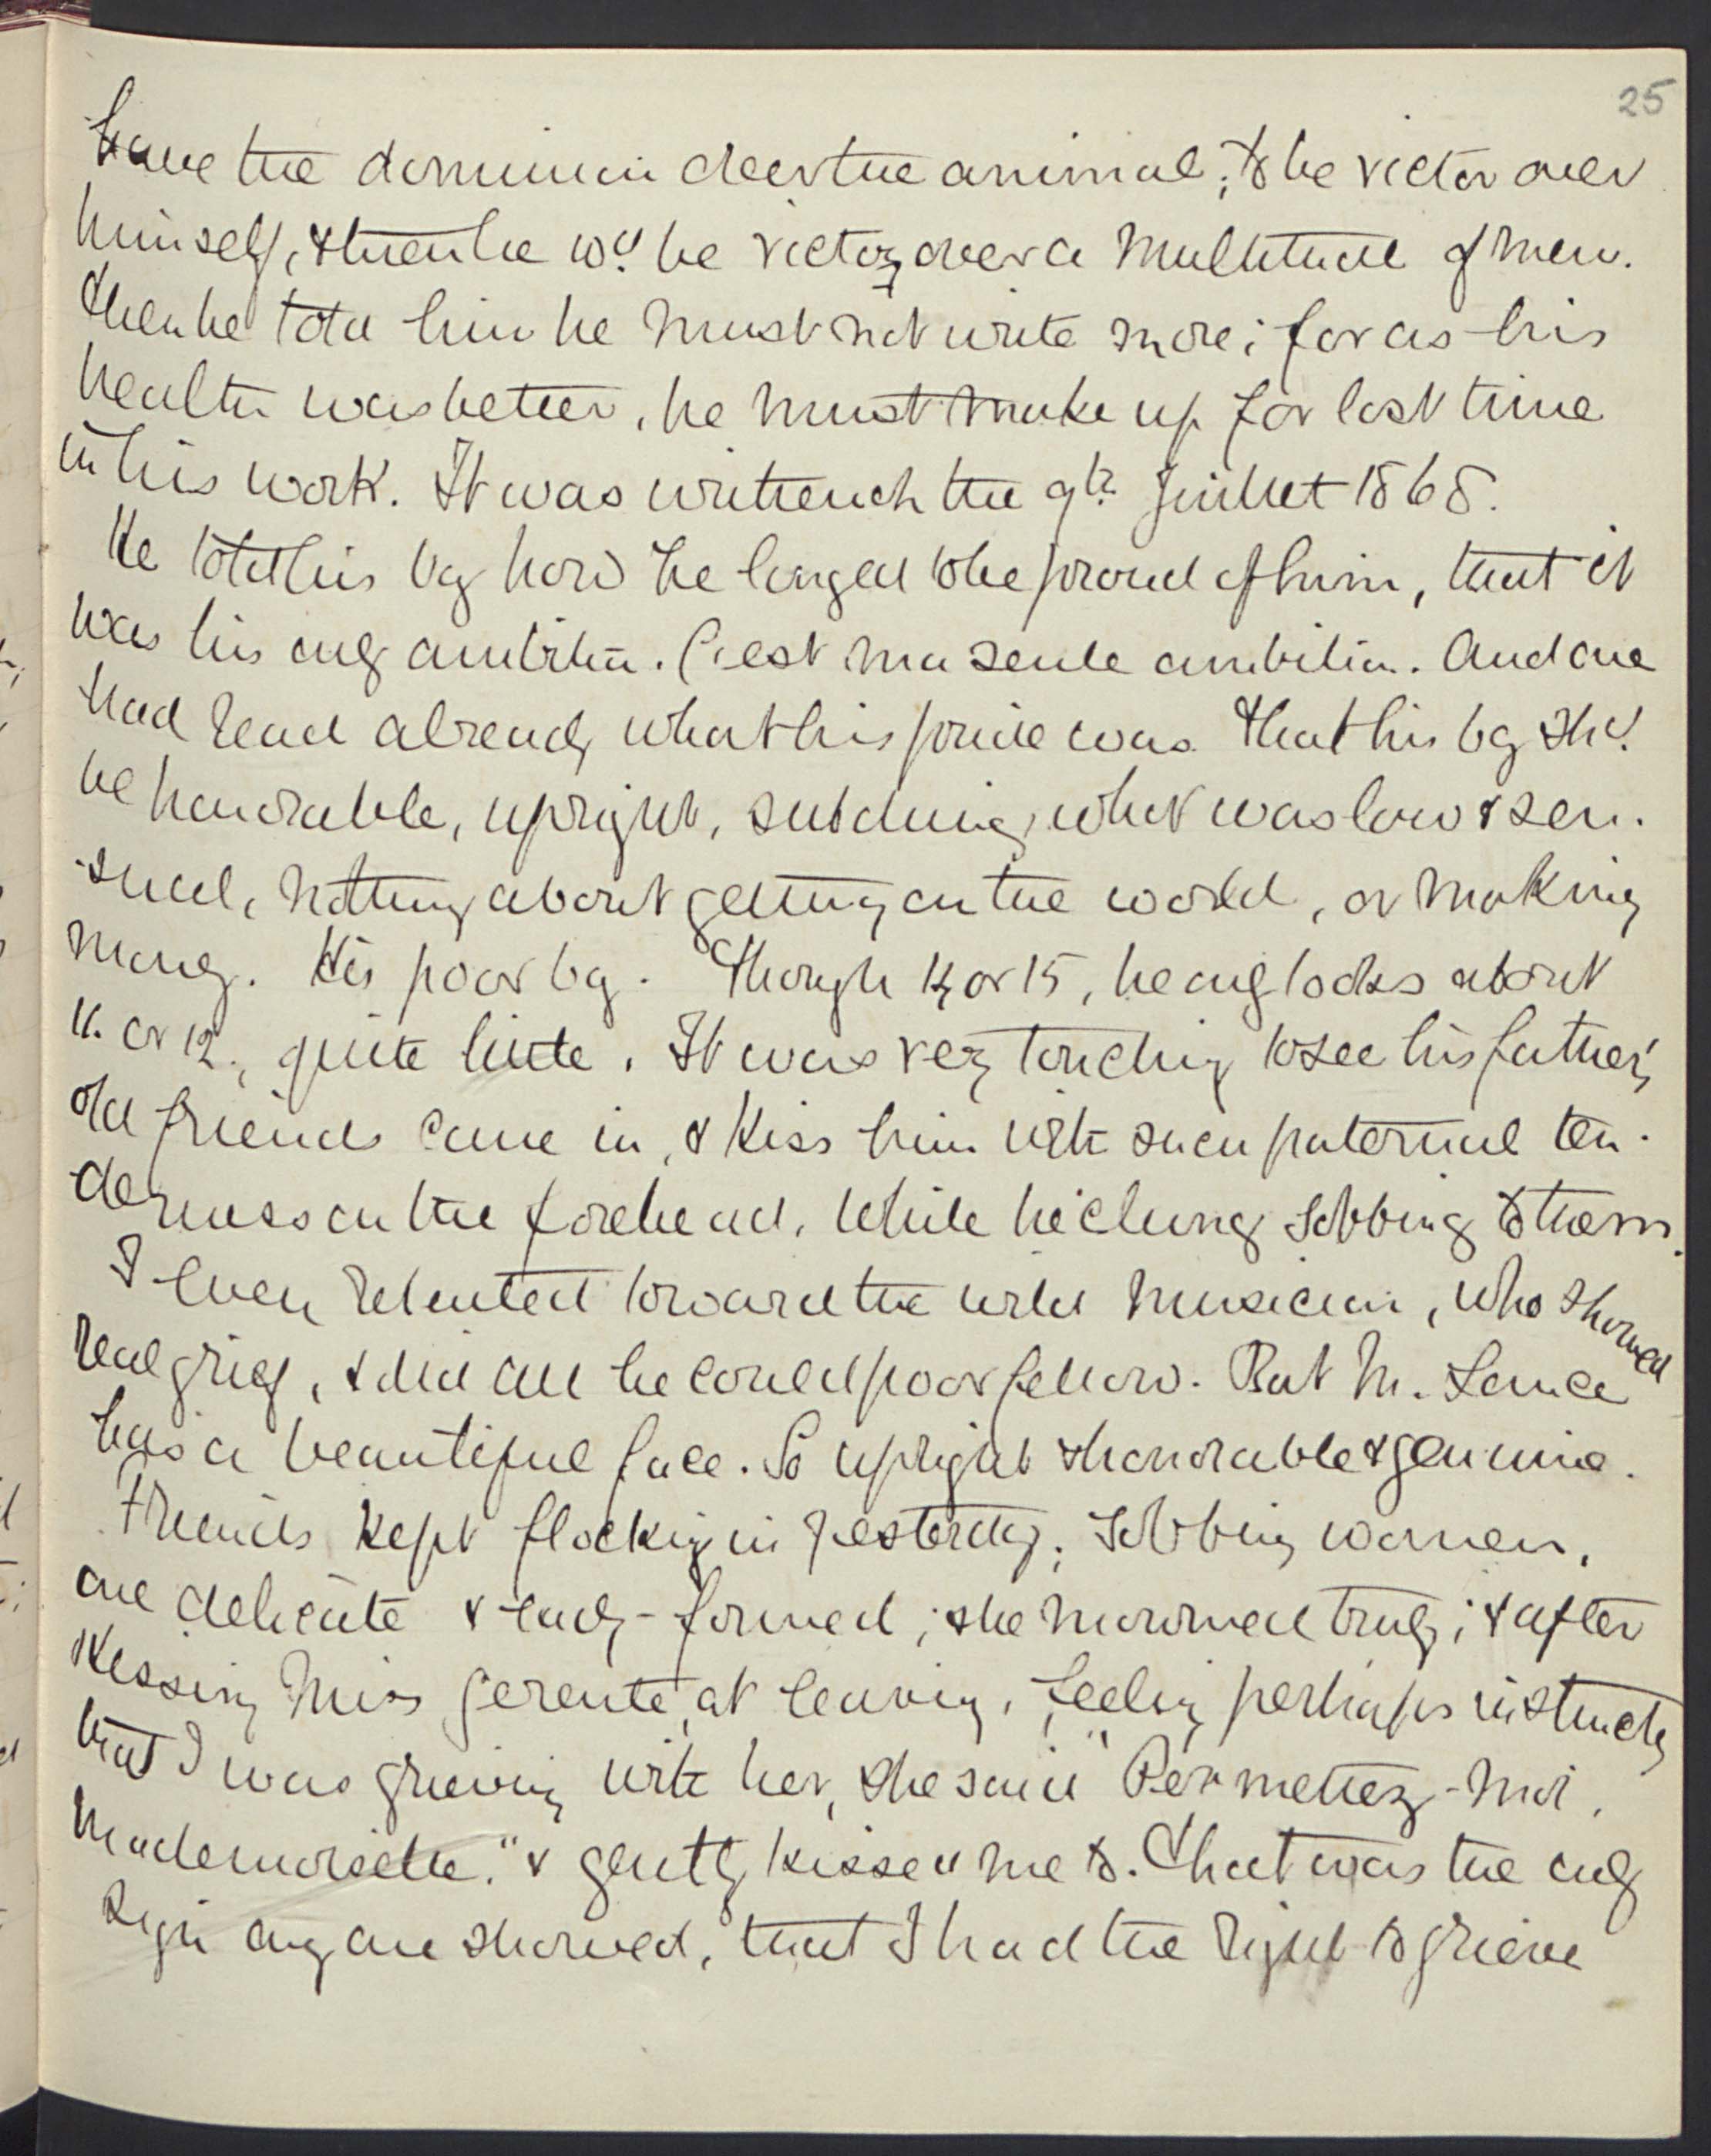 25
have the dominion over the animal; to be victor over
himself, & then he wd. be victor over a multitude of men.
Then he told him he must not write more; for as his
health was better, he must make up for lost time
in his work. It was written on the 9th Juillet 1868.
He told his boy how he longed to be proud of him, that it
was his only ambition. C'est ma seule ambition. And one
had read already what his pride was. That his boy shd.
be honorable, upright, subduing what was low & sen-
sual, nothing about getting on the world, or making
money. His poor boy. Though 14 or 15, he only looks about
11. or 12., quite little. It was very touching to see his father's
old friends come in, & kiss him with such paternal ten-
derness on the forehead, while he clung sobbing to them.
I even relented toward the wild musician, who showed
real grief, & did all he could poor fellow. But M.
has a beautiful face. So upright & honorable & genuine.
Friends kept flocking in yesterday; sobbing women,
one delicate & lady-formed; she mourned truly; & after
kissing Miss gerente, at leaving, feeling perhaps instinctly
that I was grieving with her, she said "Permettez-moi,
Mademoiselle." & gently kissed me to. That was the only
sign any one showed, that I had the right to grieve